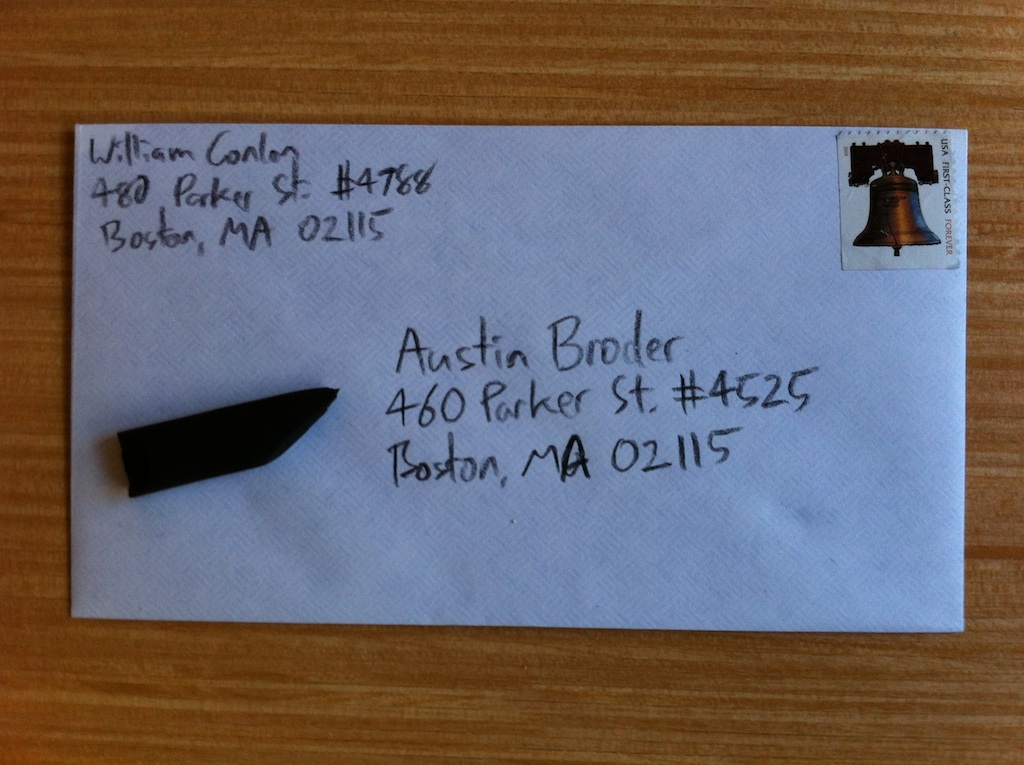 William Conlon
480 Parker St. #4788
Boston, MA 02115
USA FIRST-CLASS FOREVER
Austin Broder
460 Parker St. #4525
Boston, MA 02115